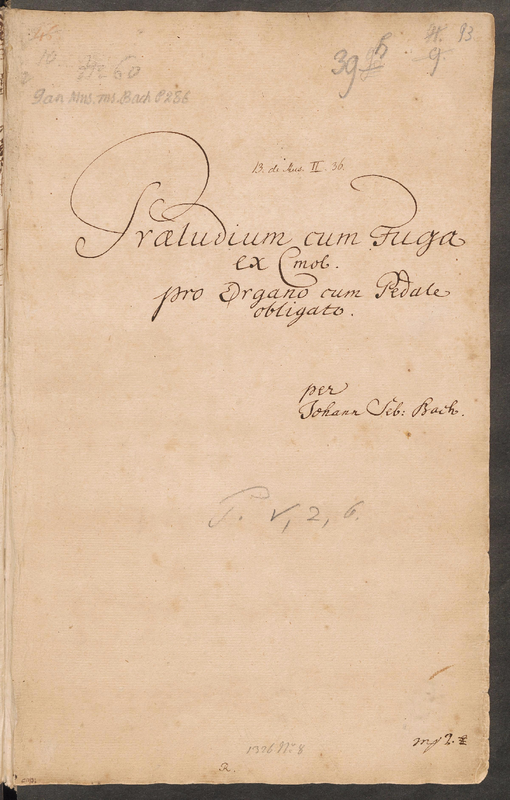 No 60
9 an Mus. ms. Bach P 286
39
9.
93
13. de Mus. II. 36.
Præludium cum Fuga
ex C mol.
pro Organo cum Pedale
obligato.
per
Johann Seb: Bach.
P. V, 2, 6.
1396 No. 8
2.